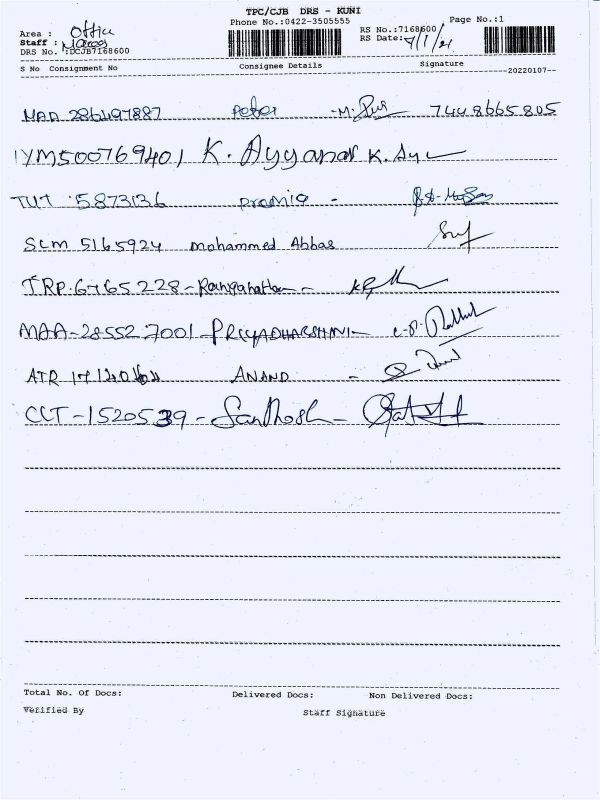 TPC/CJB DRS - KUNI
Phone No.:0422-3505555 Page No.:1
Area : Office RS No.:7168600
Staff : RS Date: 7/1/21
DRS No. :DCJB7168600
S No Consignment No Consignee Details Signature
20220107
MAA 286497887 Peter - M. 7448665805
IYM500769401 K. Ayyanar K. Ay
TUT 5873136 Pramila -
SLM 5165924 Mohammed Abbas
TRP.6765228 - Ranganathan -
MAA-285527001 - PRIYADHARSHINI -
ATR ANAND -
CCT-1520539 - Santhosh -
Total No. Of Docs: Delivered Docs: Non Delivered Docs:
Verified By Staff Signature